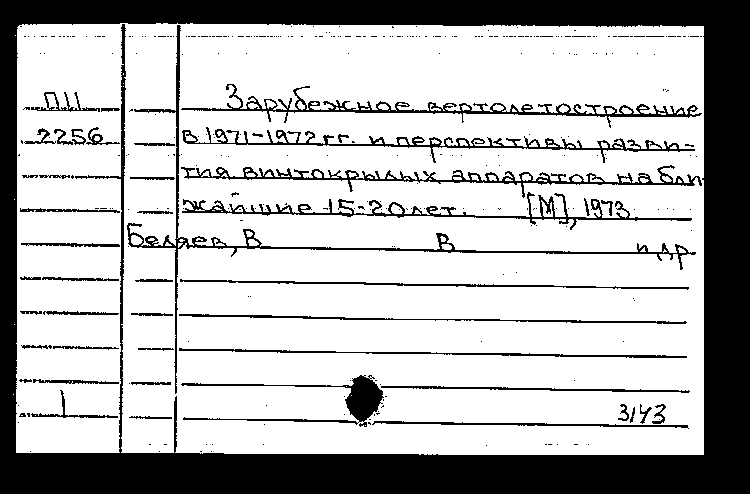 П11 Зарубежное вертолетостроение
2256 в 1971-1972 гг. и перспективы разви-
тия винтокрылых аппаратов на бли-
жайшие 15-20 лет. [М], 1973.
Беляев, В В и др.
1 3143